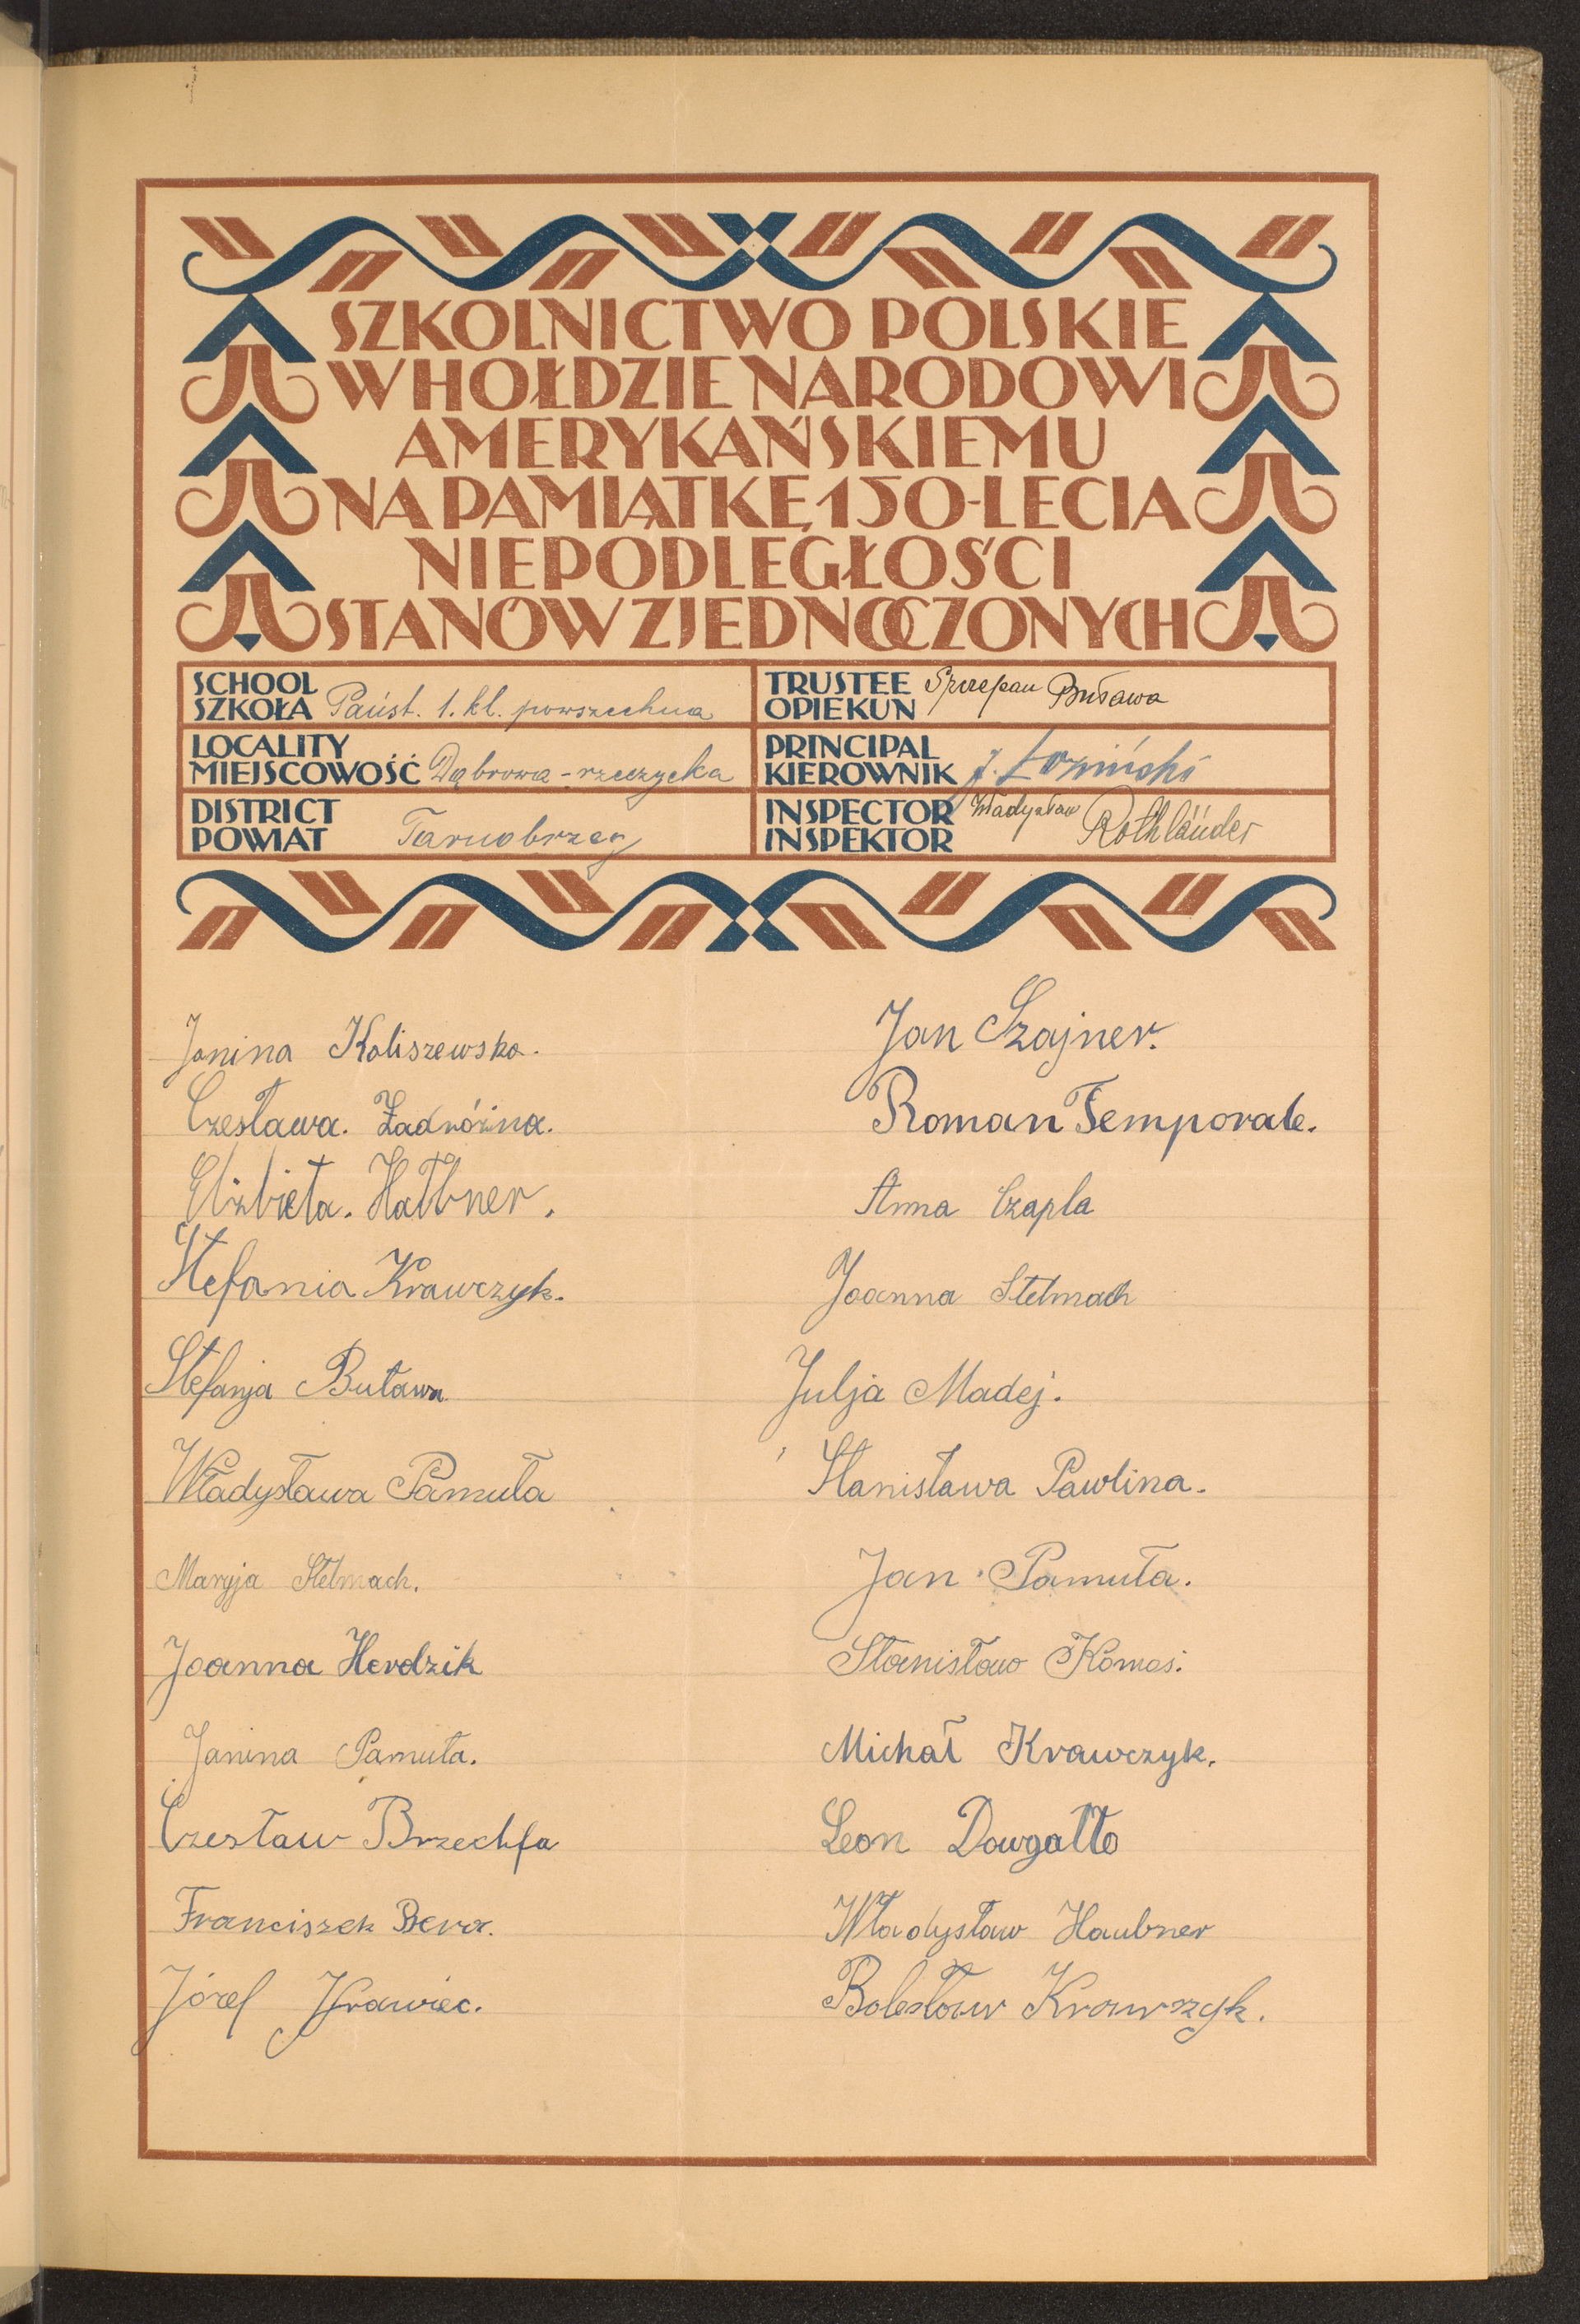 SZKOLNICTWO POLSKIE
W HOŁDZIE NARODOWI
AMERYKAŃSKIEMU
NA PAMIĄTKĘ 150-LECIA
NIEPODLEGŁOŚCI
STANÓW ZJEDNOCZONYCH
SCHOOL
SZKOŁA Państ. 1. kl. powszechna
LOCALITY
MIEJSCOWOŚĆ Dąbrowa - rzeczycka
DISTRICT
POWIAT Tarnobrzeg
TRUSTEE
OPIEKUN Szczepan Buława
PRINCIPAL
KIEROWNIK J. Łoziński
INSPECTOR
INSPEKTOR Władysław Rothländer
Janina Koliszewska.
Czesława. Zadróżna.
Elżbieta. Hałbner.
Stefania Krawczyk.
Stefanja Buława
Władysława Pamuła
Maryja Stelmach.
Joanna Herdzik
Janina Pamuła.
Czesław Brzechfa
Franciszek Bera.
Józef Krawiec.
Jan Szajner.
Roman Temporale.
Anna Czapla
Joanna Stelmach
Julja Madej.
Stanisława Pawlina.
Jan Pamuła.
Stanisław Komas.
Michał Krawczyk.
Leon Dowgałło
Władysław Haubner
Bolesław Krawczyk.